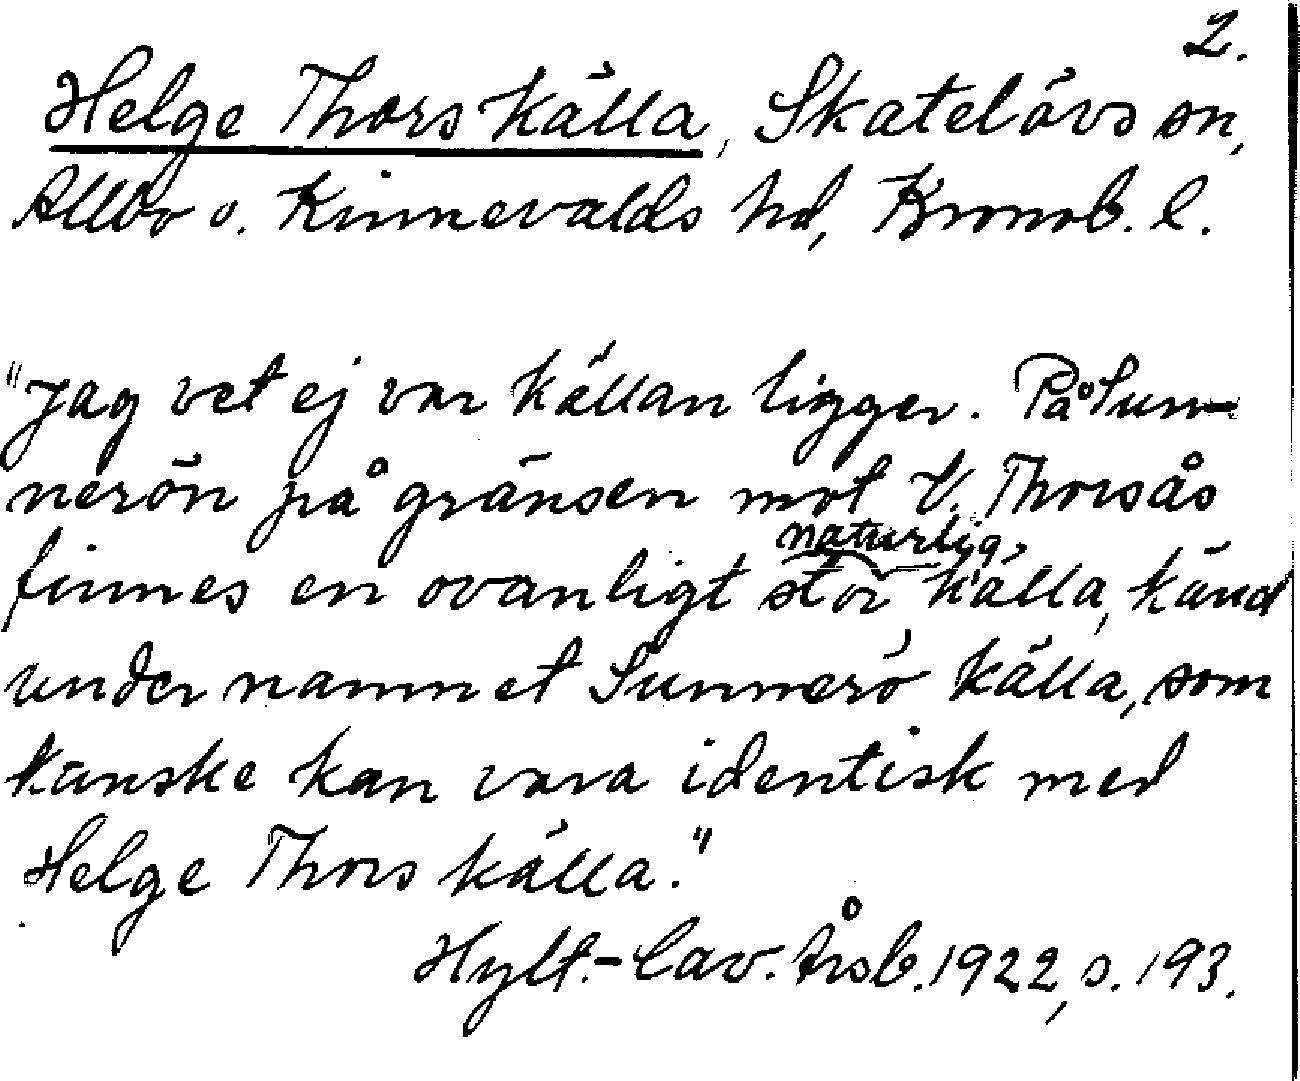 2.
Helge Thors källa, Skatelövs sn,
Allbo o. Kinnevalds hd, Kronob. l.
"Jag vet ej var källan ligger. På Sun-
nerön på gränsen mot V. Thorsås
naturlig
finnes en ovanligt stor källa, känd
under namnet Sunnerö källa, som
kanske kan vara identisk med
Helge Thors källa."
Hylt.-Cav. Årsb. 1922, s. 193.